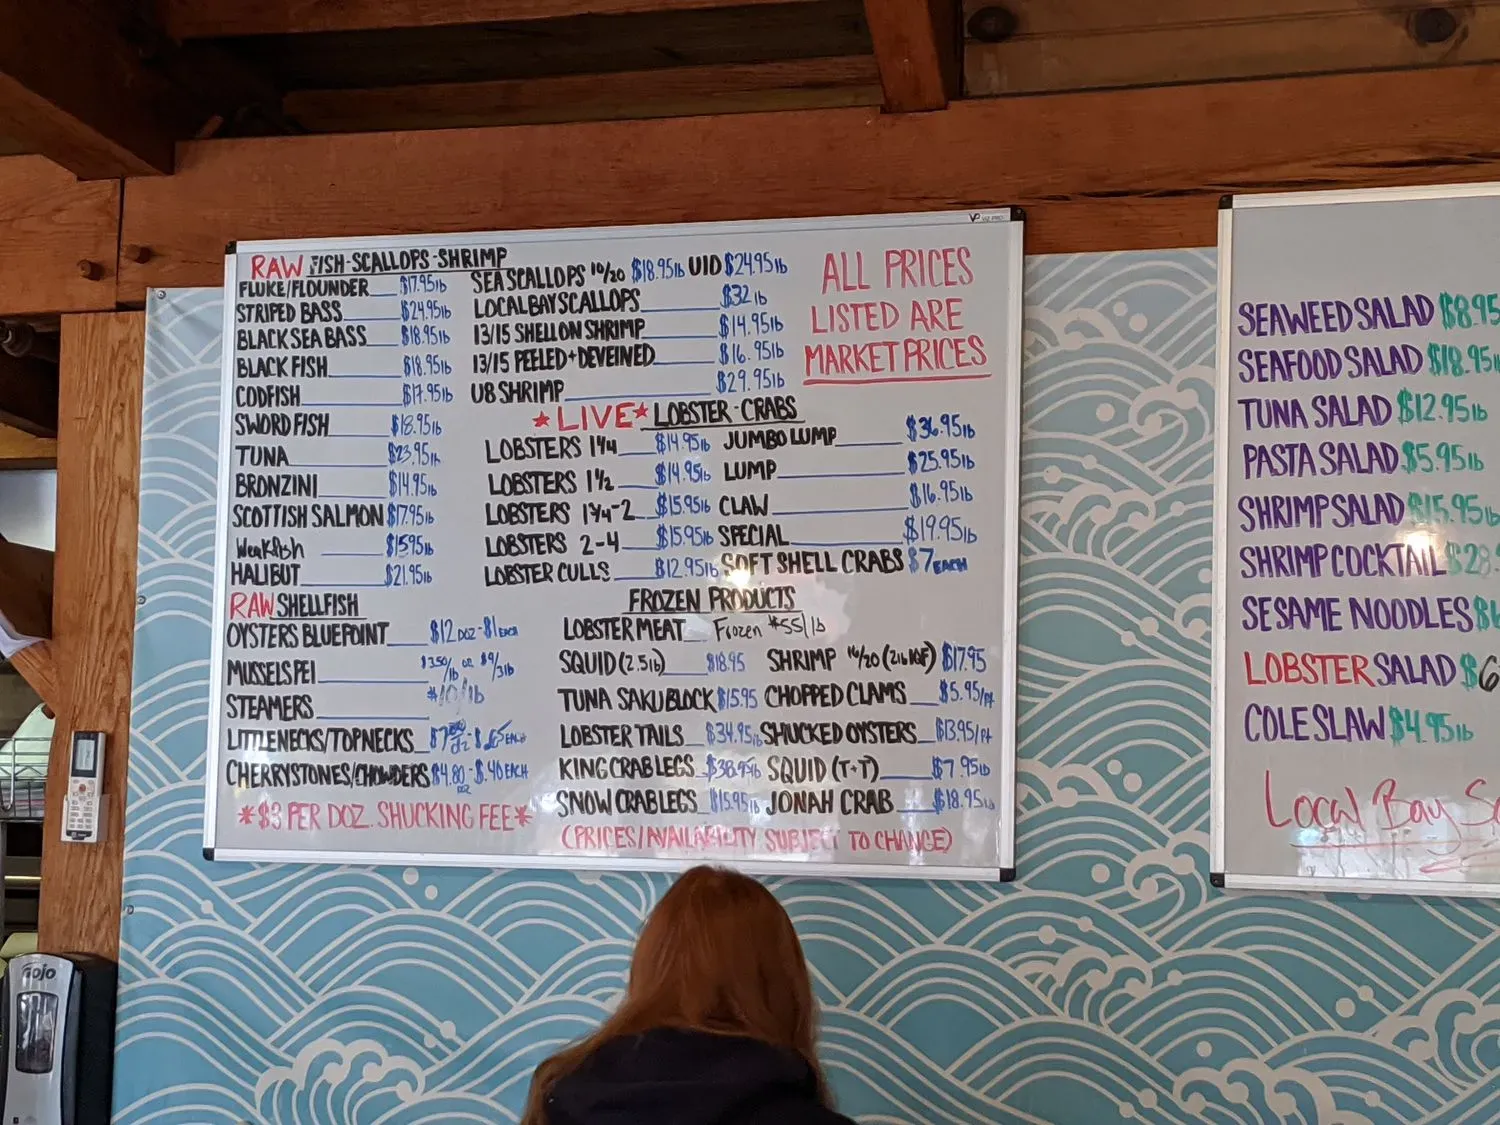 RAW FISH-SCALLOPS-SHRIMP
FLUKE/FLOUNDER $17.95lb
STRIPED BASS $24.95lb
BLACK SEA BASS $18.95lb
BLACK FISH $18.95lb
CODFISH $17.95lb
SWORD FISH $18.95lb
TUNA $23.95lb
BRONZINI $14.95lb
SCOTTISH SALMON $17.95lb
Weakfish $15.95lb
HALIBUT $21.95lb
SEA SCALLOPS 10/20 $18.95lb U10 $24.95lb
LOCAL BAY SCALLOPS $32lb
13/15 SHELL ON SHRIMP $14.95lb
13/15 PEELED+DEVEINED $16.95lb
U8 SHRIMP $29.95lb
ALL PRICES
LISTED ARE
MARKET PRICES
*LIVE* LOBSTER-CRABS
LOBSTERS 1 1/4 $14.95lb
LOBSTERS 1 1/2 $14.95lb
LOBSTERS 1 3/4-2 $15.95lb
LOBSTERS 2-4 $15.95lb
LOBSTER CULLS $12.95lb
JUMBO LUMP $36.95lb
LUMP $25.95lb
CLAW $16.95lb
SPECIAL $19.95lb
SOFT SHELL CRABS $7 EACH
RAW SHELLFISH
OYSTERS BLUEPOINT $12 DOZ-$1 EACH
MUSSELS PEI $3.50/lb or $9/3lb
STEAMERS $10/lb
LITTLENECKS/TOPNECKS
CHERRYSTONES/CHOWDERS $4.80 DZ-$.40 EACH
*$3 PER DOZ. SHUCKING FEE*
FROZEN PRODUCTS
LOBSTER MEAT Frozen $55/lb
SQUID (2.5lb) $18.95
TUNA SAKU BLOCK $15.95
LOBSTER TAILS $34.95lb
KING CRAB LEGS $38.95lb
SNOW CRAB LEGS $15.95lb
SHRIMP 16/20 (2lb IQF) $17.95
CHOPPED CLAMS $5.95/pt
SHUCKED OYSTERS $13.95/pt
SQUID (T+T) $7.95lb
JONAH CRAB $18.95lb
(PRICES/AVAILABILITY SUBJECT TO CHANGE)
SEAWEED SALAD $8.95
SEAFOOD SALAD $18.95lb
TUNA SALAD $12.95lb
PASTA SALAD $5.95lb
SHRIMP SALAD $15.95lb
SHRIMP COCKTAIL $28
SESAME NOODLES $6
LOBSTER SALAD $6
COLESLAW $4.95lb
Local Bay
GOJO